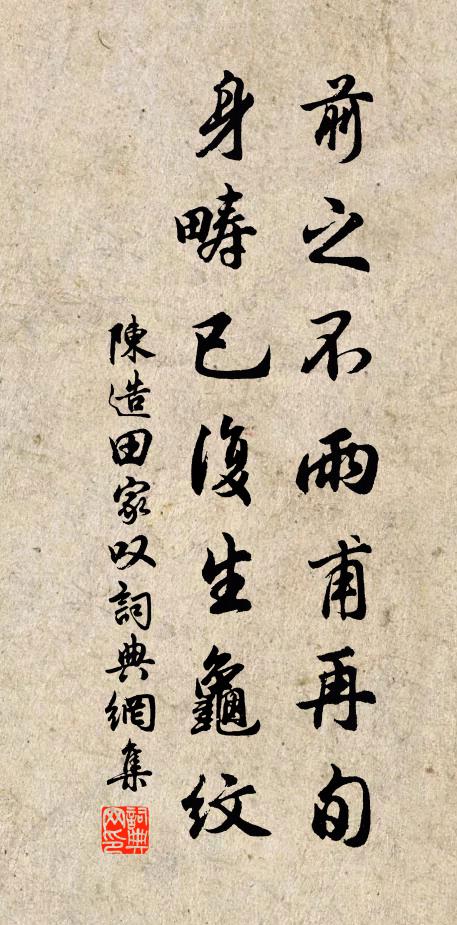 前之不雨甫再旬
身疇已復生龜紋
陳造田家叹詞典網集
詞典网印